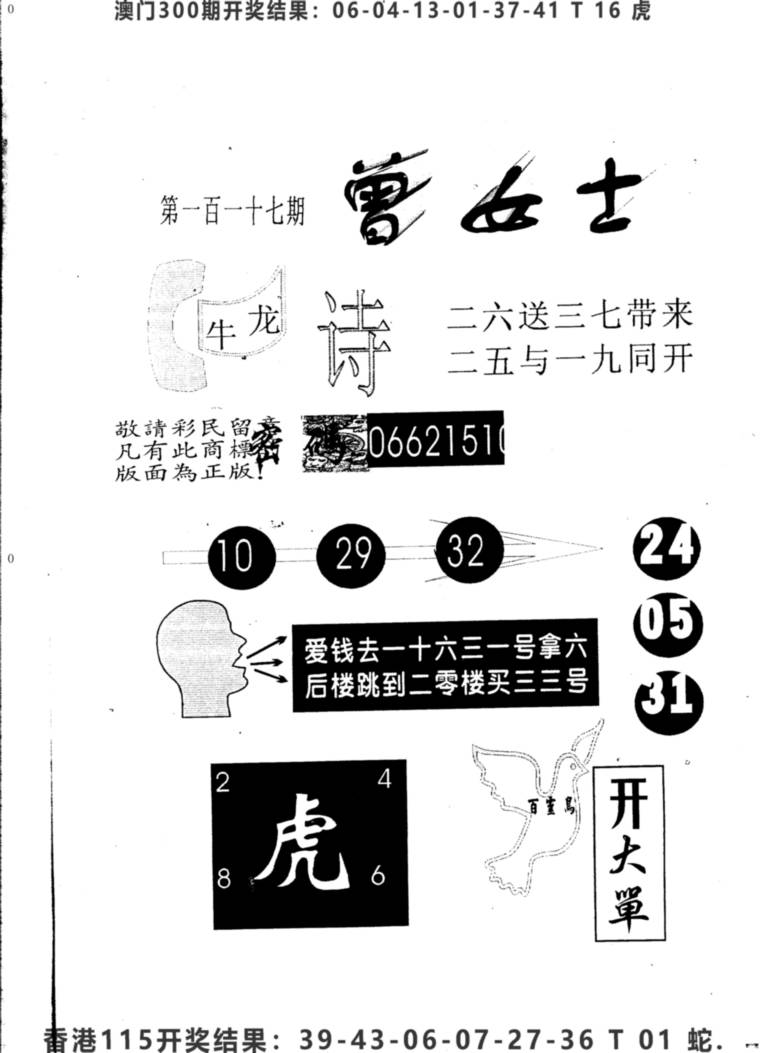 澳门300期开奖结果：06-04-13-01-37-41 T 16 虎
第一百一十七期
曾女士
牛 龙
诗
二六送三七带来
二五与一九同开
敬請彩民留意
凡有此商標
版面為正版！
密碼 06621510
10 29 32
24
05
31
爱钱去一十六三一号拿六
后楼跳到二零楼买三三号
2 4
虎
8 6
百灵鸟
开大單
香港115开奖结果：39-43-06-07-27-36 T 01 蛇.